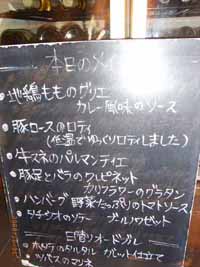 本日のメイ
・地鶏もものグリエ
カレー風味のソース
・豚ロースのロティ
(低温でゆっくりロティしました)
・牛スネのパルマンティエ
・豚足とバラのクレピネット
カリフラワーのグラタン
・ハンバーグ 野菜たっぷりのトマトソース
・タチウオのソテー ブールノワゼット
日替りオードブル
・ホタテのタルタル ガレット仕立て
・ツブ貝のマリネ